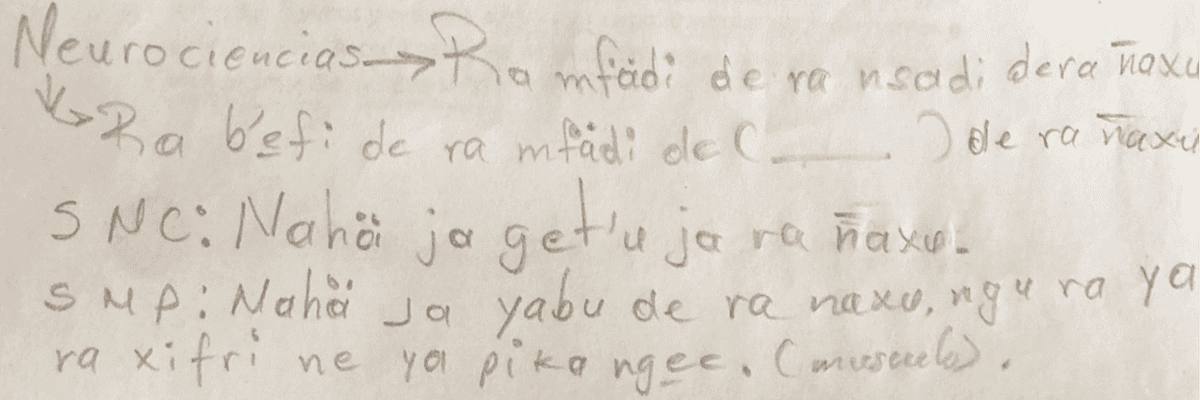 Neurociencias → Ra mfädi de ra nsadi dera n̄axu
↳ Ra b'e̲fi de ra mfädi de (____) de ra n̄axu
SNC: Nahä ja get'u ja ra n̄axu.
SNP: Nahä Ja yabu de ra naxu, ngu ra ya
ra xifri ne ya pika nge̲e. (musculo).